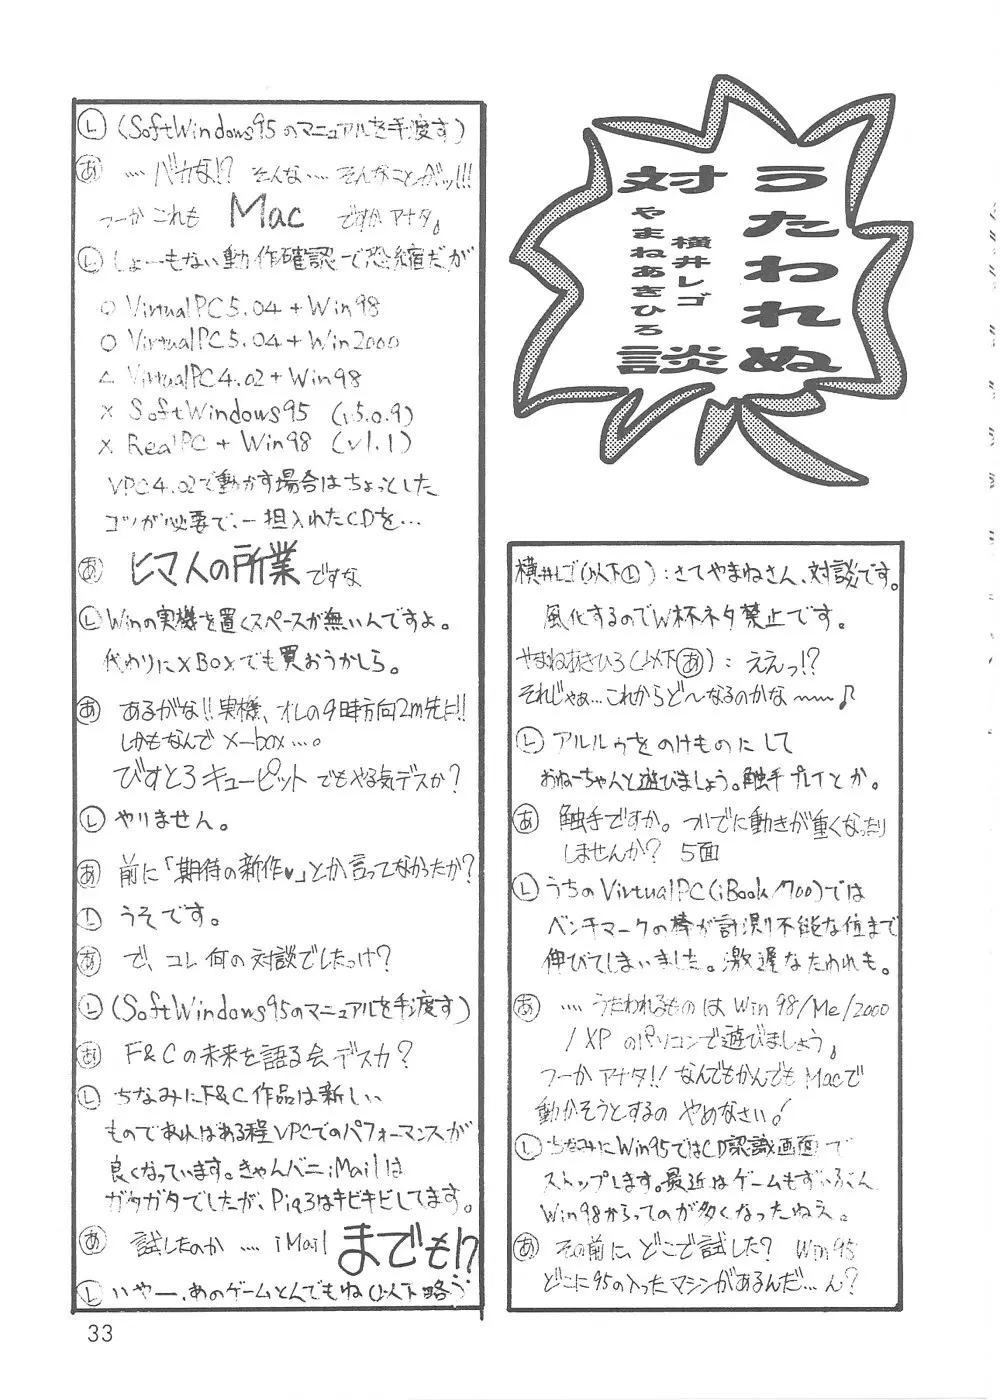 うたわれぬ
対談
横井レゴ
やまねあきひろ
横井レゴ(以下Ⓛ):さてやまねさん、対談です。
風化するのでW杯ネタ禁止です。
やまねあきひろ(以下あ):ええっ!?
それじゃぁ…これからど〜なるのかな〜〜♪
Ⓛ アルルゥをのけものにして
おねーちゃんと遊びましょう。触手プレイとか。
あ 触手ですか。ついでに動きが重くなったり
しませんか? 5面
Ⓛ うちのVirtualPC(iBook/700)では
ベンチマークの棒が計測不能な位まで
伸びてしまいました。激遅なたわれも。
あ ….うたわれるものは Win98/Me/2000
/XPのパソコンで遊びましょう。
つーかアナタ!!なんでもかんでもMacで
動かそうとするのやめなさい!
Ⓛ ちなみにWin95ではCD認識画面で
ストップします。最近はゲームもずいぶん
Win98からってのが多くなったねえ。
あ その前に、どこで試した? Win95
どこに95の入ったマシンがあるんだ…ん?
Ⓛ (SoftWindows95のマニュアルを手渡す)
あ ….バカな!? そんな….そんなことがッ!!!
つーかこれも Mac ですかアナタ。
Ⓛ しょーもない動作確認で恐縮だが
○ VirtualPC5.04+Win98
○ VirtualPC5.04+Win2000
△ VirtualPC4.02+Win98
× SoftWindows95 (v5.0.9)
× RealPC+Win98 (v1.1)
VPC4.02で動かす場合はちょっとした
コツが必要で、一担入れたCDを…
あ ヒマ人の所業ですな
Ⓛ Winの実機を置くスペースが無いんですよ。
代わりにXBoxでも買おうかしら。
あ あるがな!!実機、オレの9時方向2m先に!!
しかもなんでX-box…。
びすとろキューピットでもやる気デスか?
Ⓛ やりません。
あ 前に「期待の新作♥」とか言ってなかったか?
Ⓛ うそです。
あ で、コレ何の対談でしたっけ?
Ⓛ (SoftWindows95のマニュアルを手渡す)
あ F&Cの未来を語る会デスカ?
Ⓛ ちなみにF&C作品は新しい
ものであればある程VPCでのパフォーマンスが
良くなっています。きゃんバニiMailは
ガタガタでしたが、Pia3はキビキビしてます。
あ 試したのか….iMailまでも!?
Ⓛ いやー、あのゲームとんでもね(以下略)
33